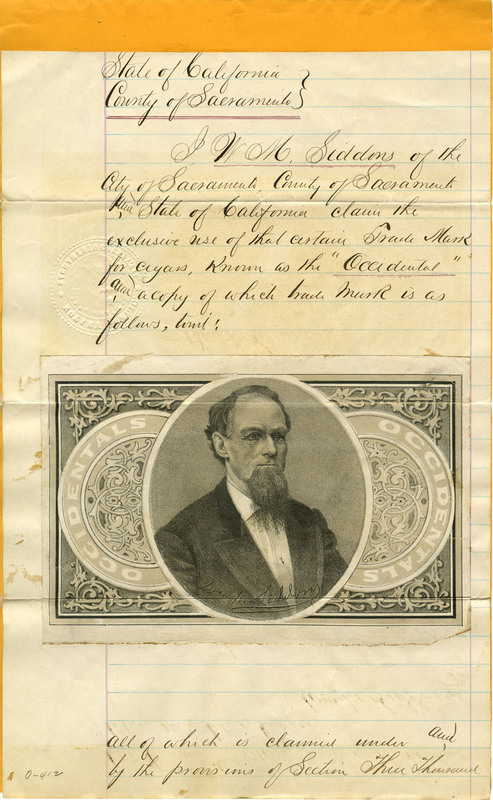 State of California
County of Sacramento }
I W M. Siddons of the
City of Sacramento, County of Sacramento
and State of California claim the
exclusive use of that certain Trade Mark
for cigars, Known as the "Occidental"
and a copy of which trade Mark is as
follows, towit:
OCCIDENTALS
OCCIDENTALS
All of which is claimed under and
by the provisions of Section Three Thousand
0-402